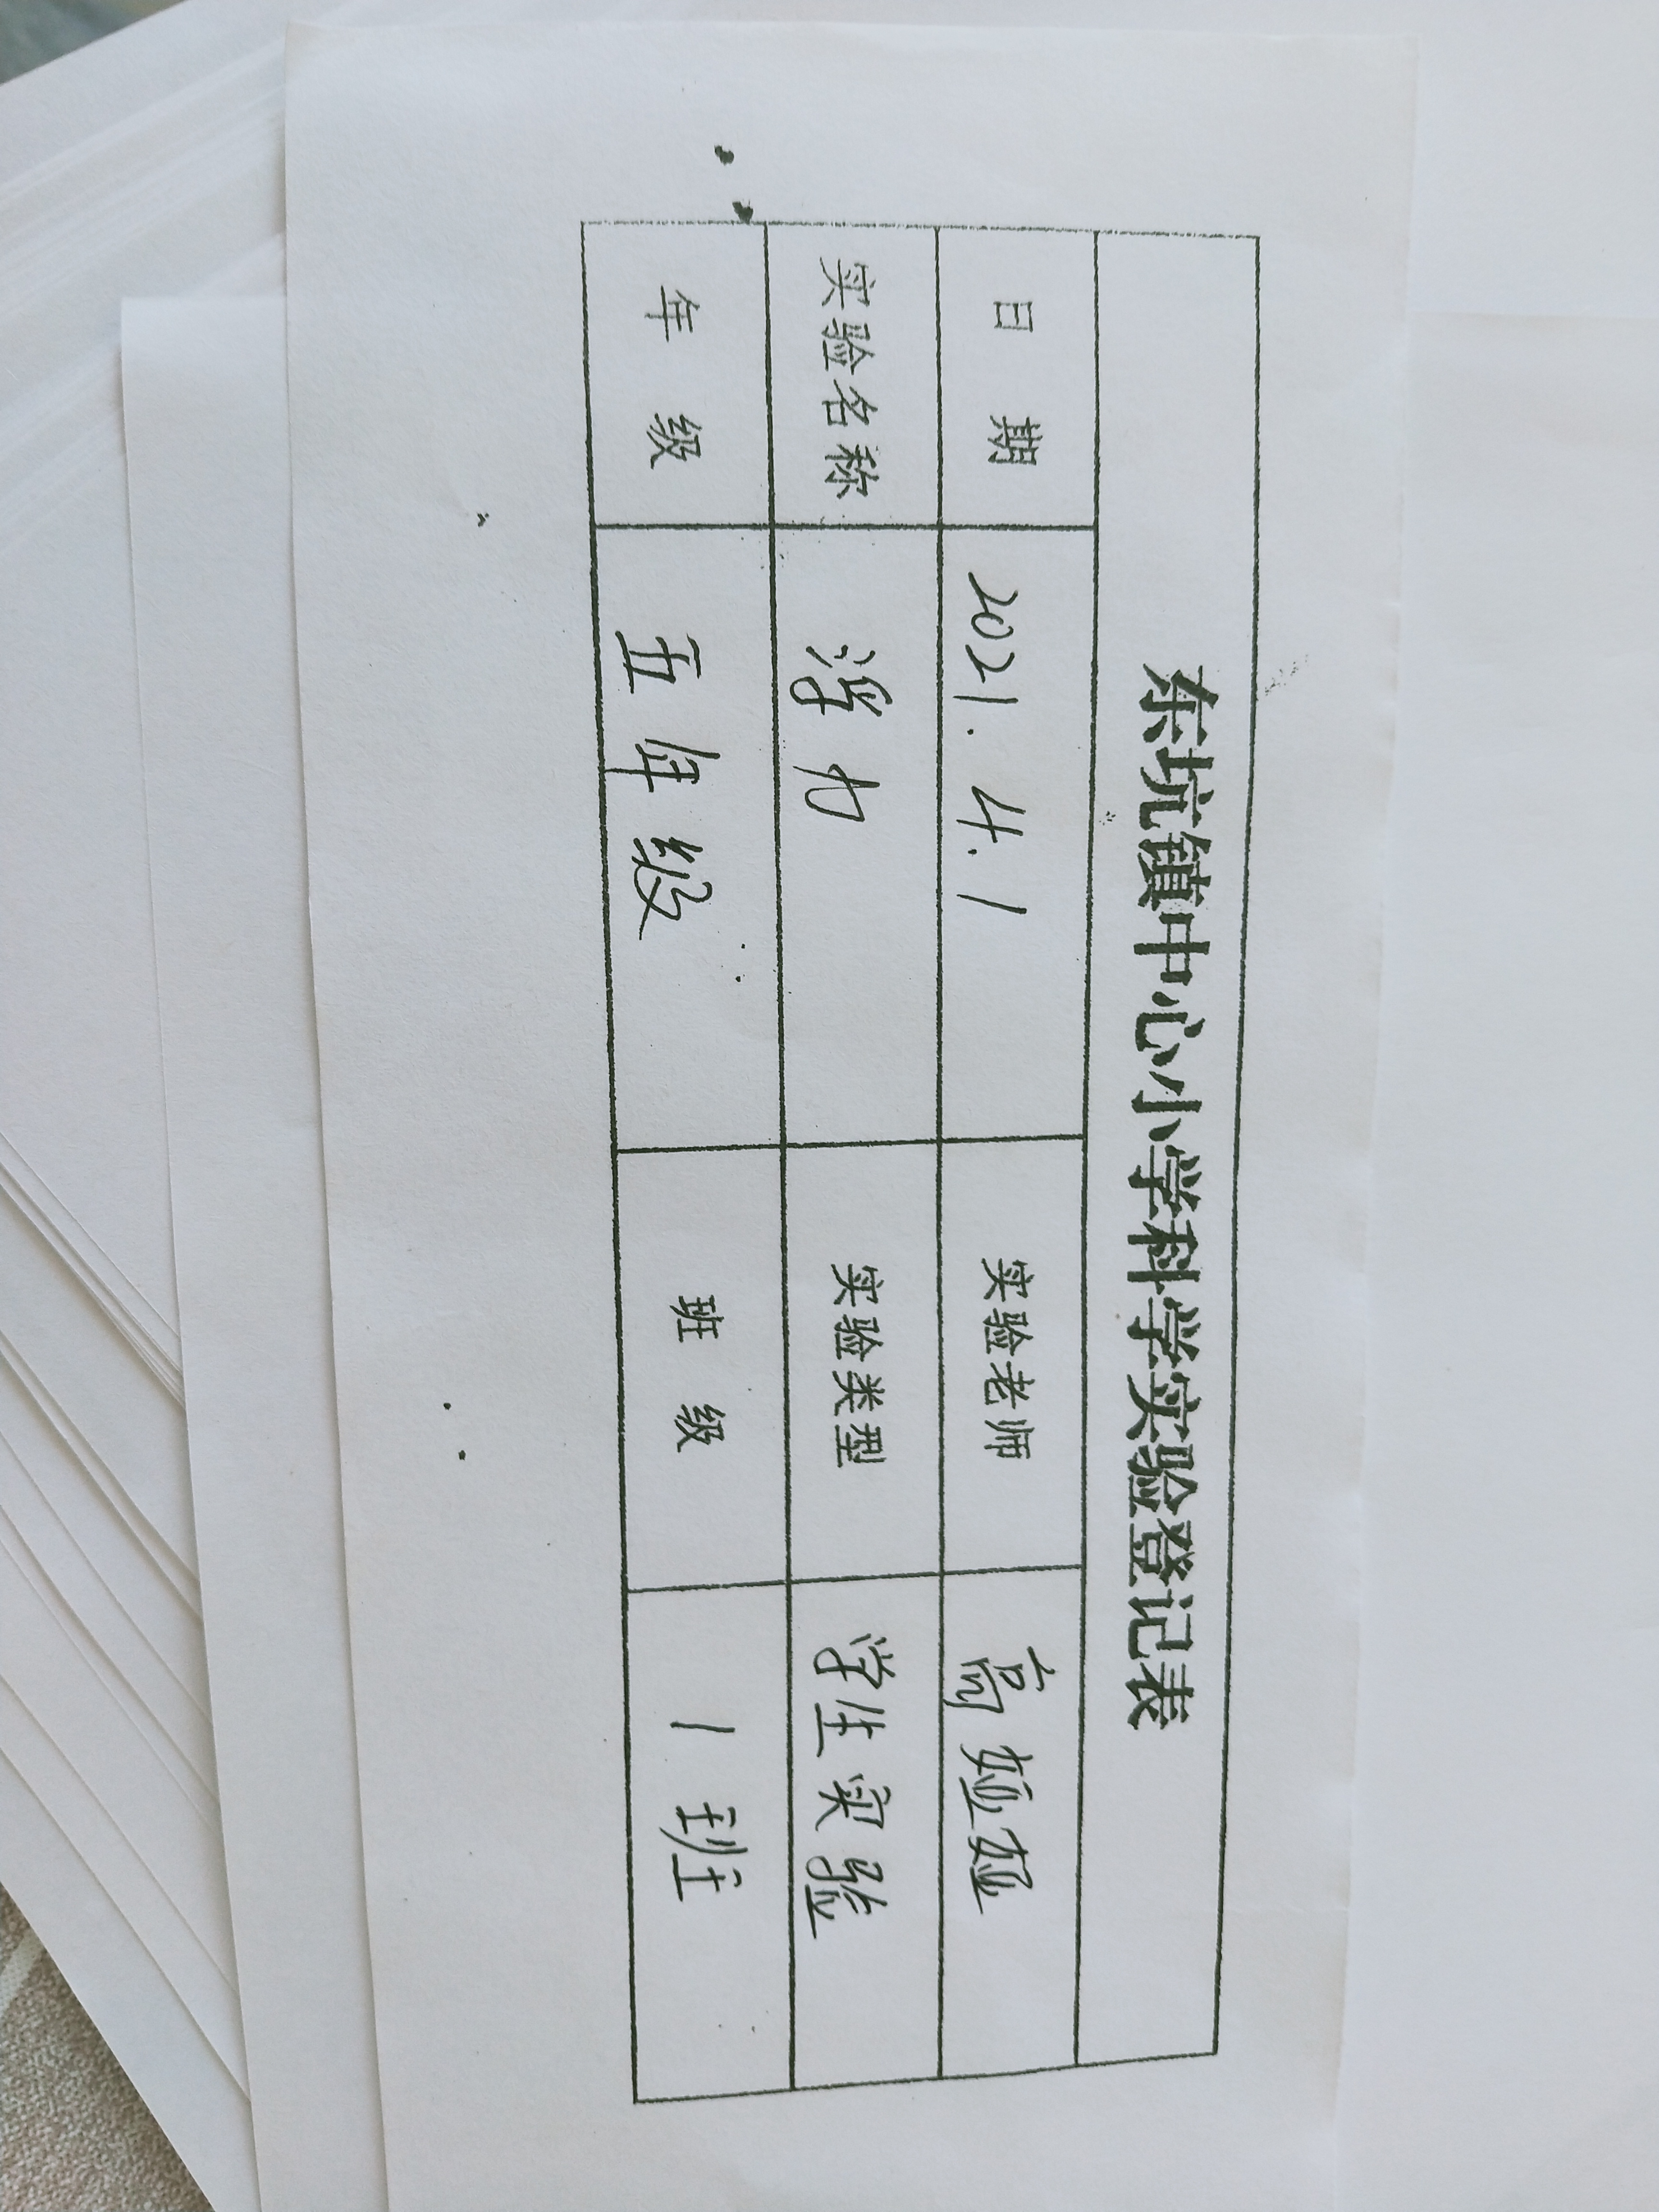 东坑镇中心小学科学实验登记表
日 期 2021.4.1 实验老师 高娅娅
实验名称 浮力 实验类型 学生实验
年 级 五年级 班 级 1班